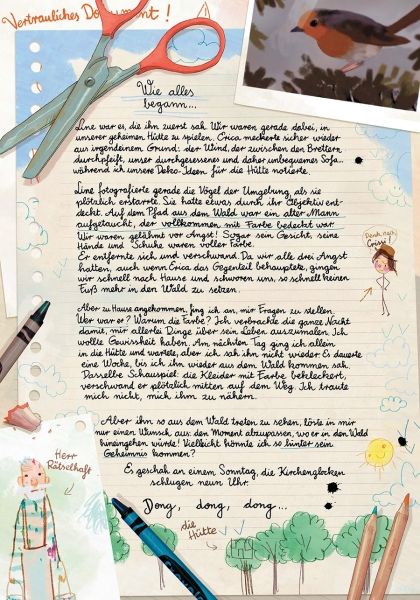 Vertrauliches Dokument!
Wie alles
begann...
Line war es, die ihn zuerst sah. Wir waren gerade dabei, in
unserer geheimen Hütte zu spielen. Erica meckerte sicher wieder
aus irgendeinem Grund: der Wind, der zwischen den Brettern
durchpfeift, unser durchgesessenes und daher unbequemes Sofa...
während ich unsere Deko-Ideen für die Hütte notierte.
Line fotografierte gerade die Vögel der Umgebung, als sie
plötzlich erstarrte. Sie hatte etwas durch ihr Objektiv ent-
deckt. Auf dem Pfad aus dem Wald war ein alter Mann
aufgetaucht, der vollkommen mit Farbe bedeckt war.
Wir waren gelähmt vor Angst! Sogar sein Gesicht, seine
Hände und Schuhe waren voller Farbe.
Er entfernte sich und verschwand. Da wir alle drei Angst
hatten, auch wenn Erica das Gegenteil behauptete, gingen
wir schnell nach Hause und schworen uns, so schnell keinen
Fuß mehr in den Wald zu setzen.
Denk nach,
Crissi
Aber zu Hause angekommen, fing ich an, mir Fragen zu stellen.
Wer war er? Warum die Farbe? Ich verbrachte die ganze Nacht
damit, mir allerlei Dinge über sein Leben auszumalen. Ich
wollte Gewissheit haben. Am nächsten Tag ging ich allein
in die Hütte und wartete, aber ich sah ihn nicht wieder. Es dauerte
eine Woche, bis ich ihn wieder aus dem Wald kommen sah.
Dasselbe Schauspiel: die Kleider mit Farbe bekleckert,
verschwand er plötzlich mitten auf dem Weg. Ich traute
mich nicht, mich ihm zu nähern.
Aber ihn so aus dem Wald treten zu sehen, löste in mir
nur einen Wunsch aus: den Moment abzupassen, wo er in den Wald
hineingehen würde! Vielleicht könnte ich so hinter sein
Geheimnis kommen?
Es geschah an einem Sonntag, die Kirchenglocken
schlugen neun Uhr.
Dong, dong, dong...
Herr
Rätselhaft
die
Hütte